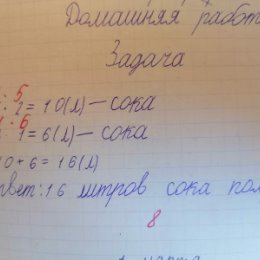 Домашняя работ
Задача
: 5
: 2 = 10 (л) — сока
: 6
: 1 = 6 (л) — сока
0 + 6 = 16 (л)
твет: 16 литров сока пол
8
1 марта